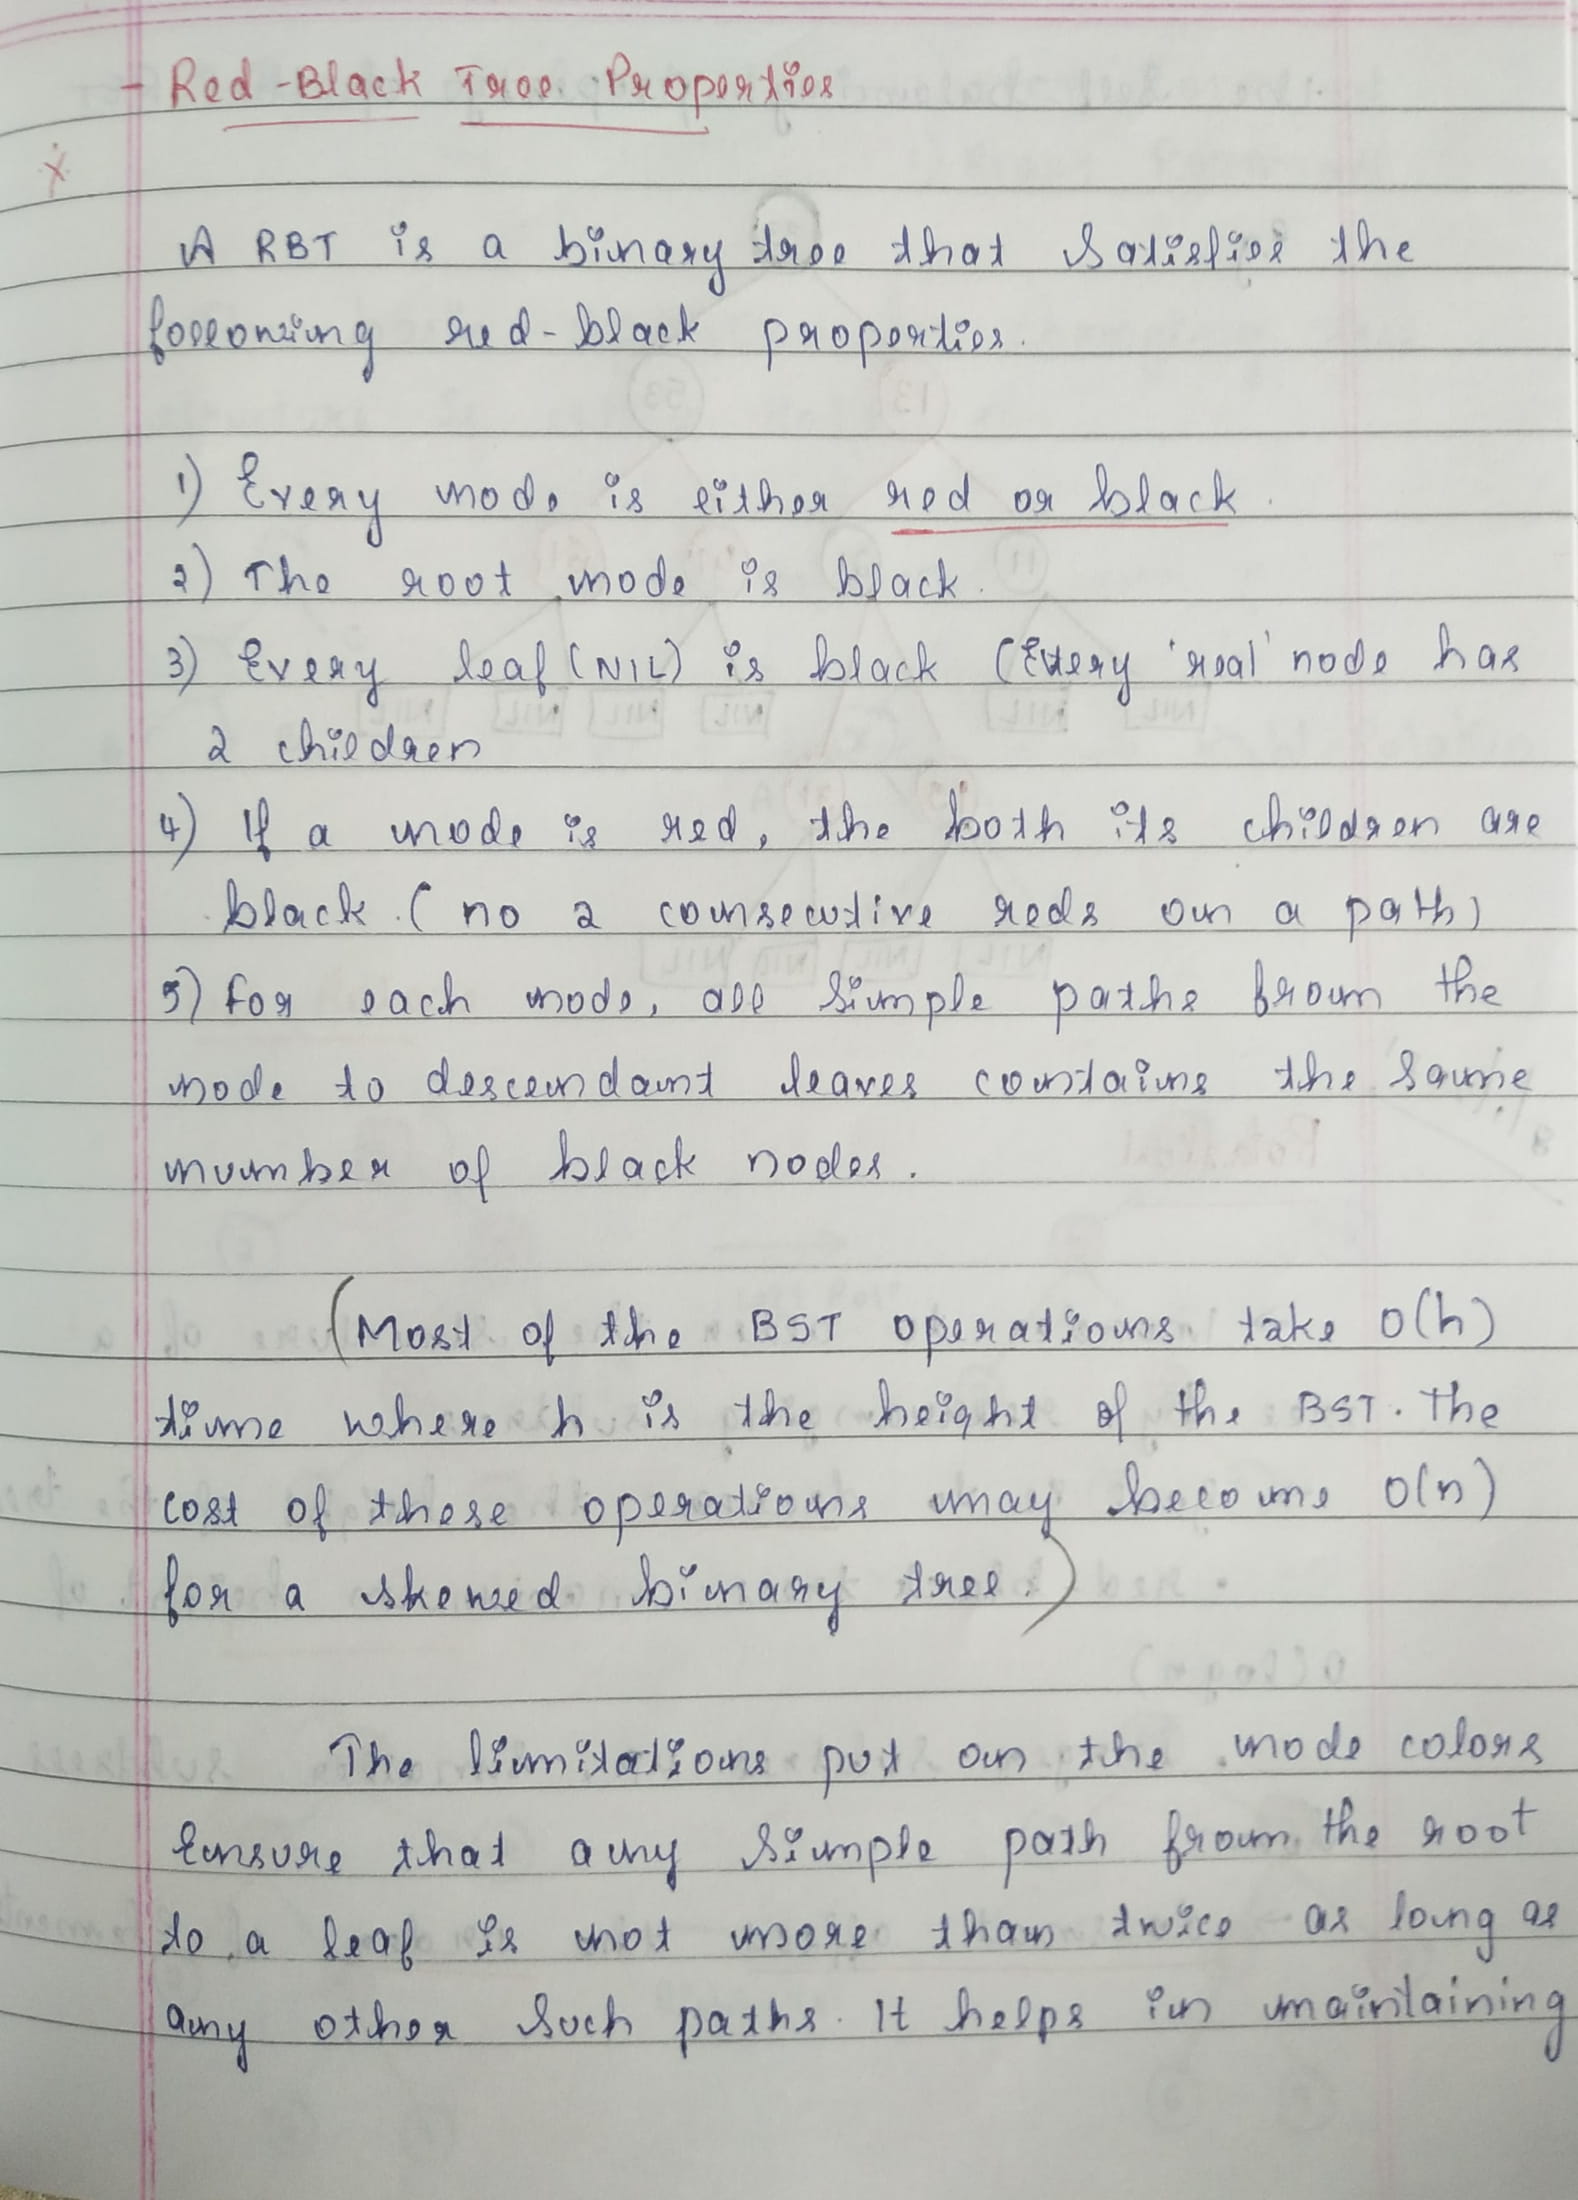 - Red-Black Tree Properties
A RBT is a binary tree that satisfies the
following red-black properties.
1) Every node is either red or black.
2) The root node is black.
3) Every leaf (NIL) is black (Every 'real' node has
2 children
4) If a node is red, the both its children are
black. (no 2 consecutive reds on a path)
5) For each node, all simple paths from the
node to descendant leaves contains the same
number of black nodes.
(Most of the BST operations take O(h)
time where h is the height of the BST. The
cost of these operations may become O(n)
for a skewed binary tree.)
The limitations put on the node colors
Ensure that any simple path from the root
to a leaf is not more than twice as long as
any other such paths. It helps in maintaining